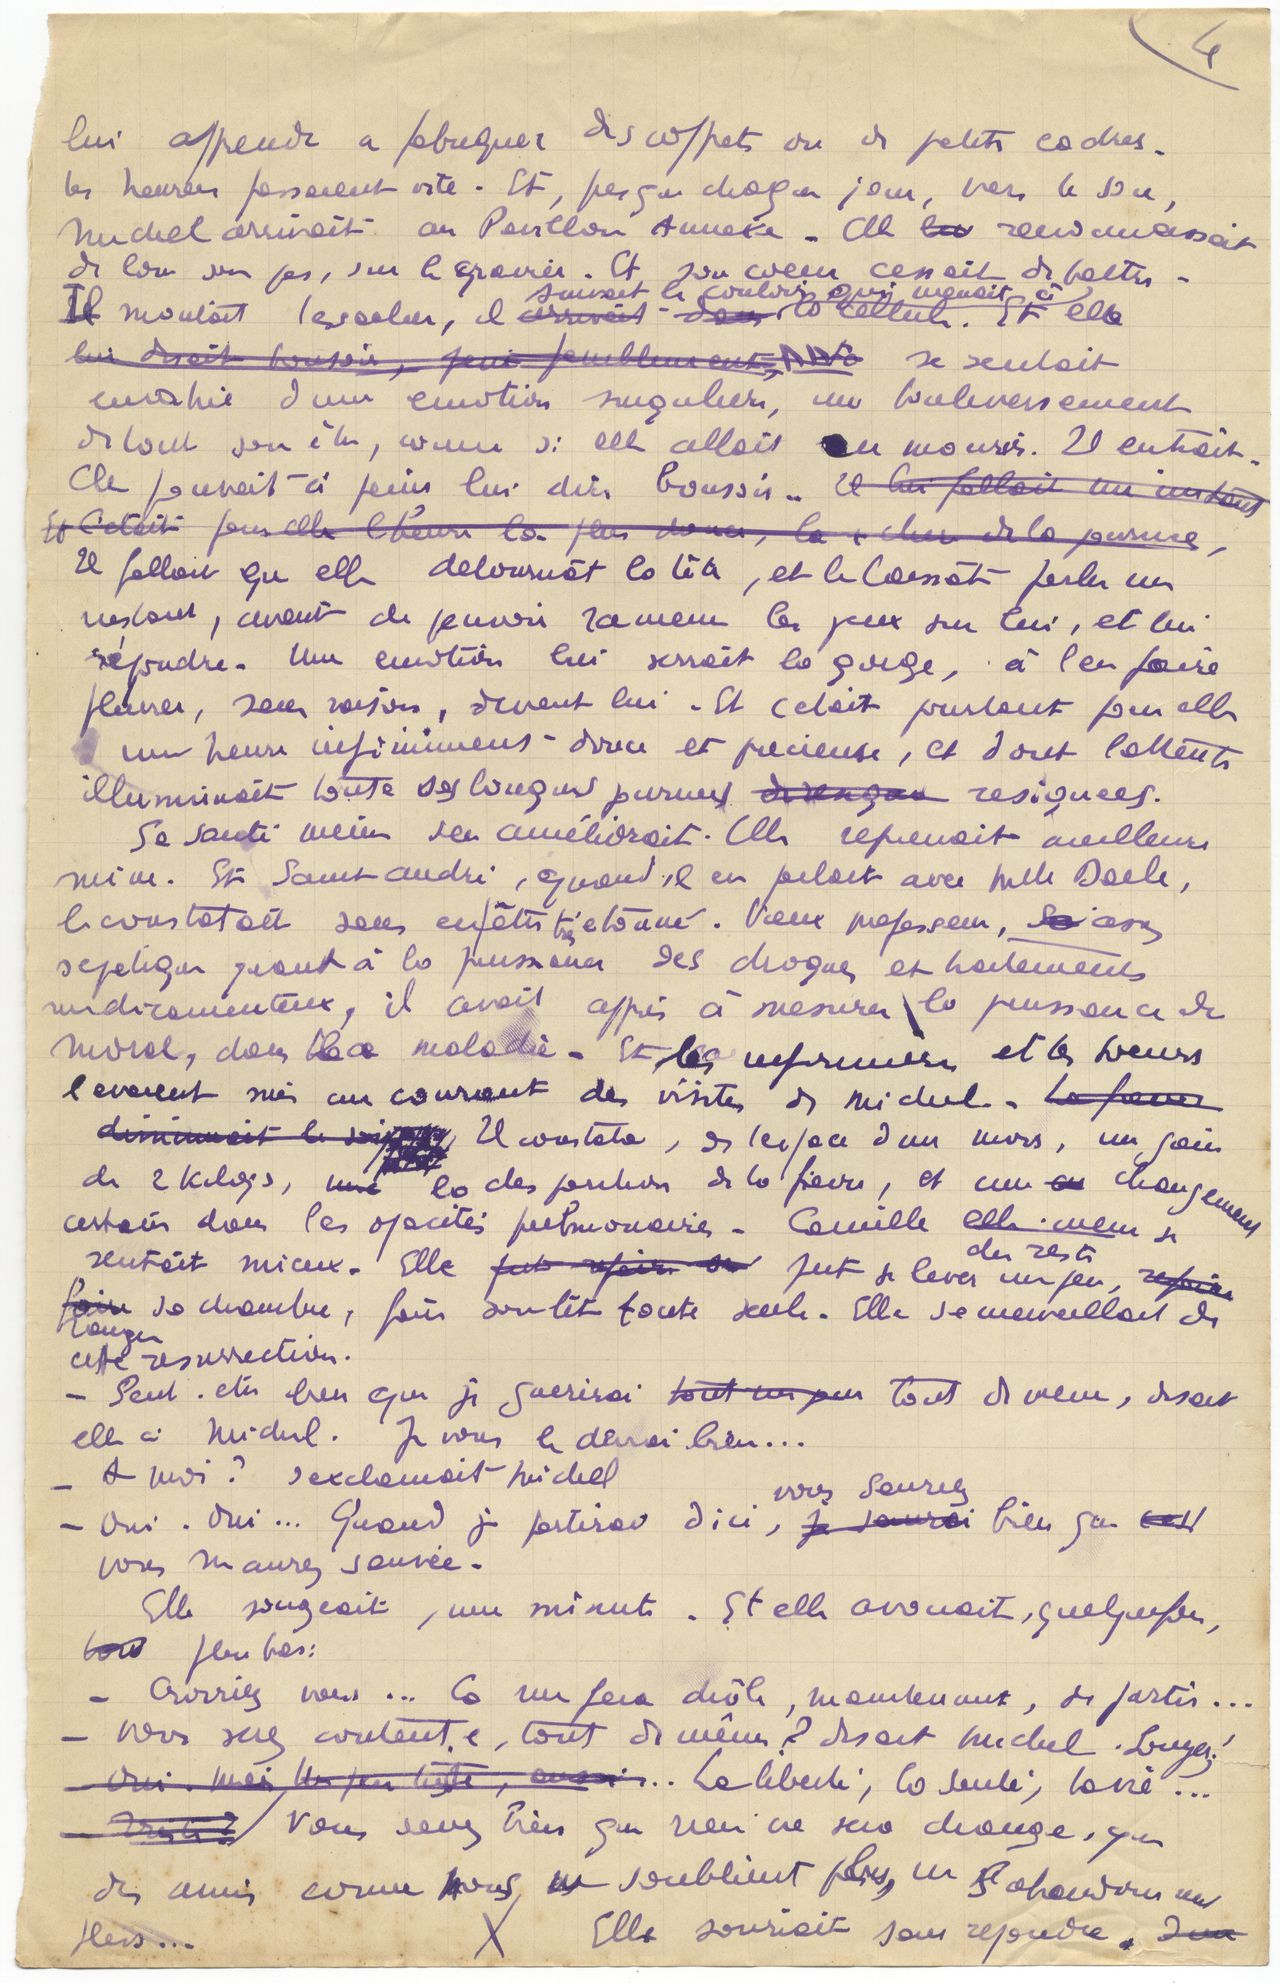 4
lui apprendre a fabriquer des coffrets ou de petits cadres.
les heures passaient vite. Et, presque chaque jour, vers le soir,
Michel arrivait au Pavillon Annexe. Elle reconnaissait
de loin son pas, sur le gravier. Et son coeur cessait de battre.
suivait le couloir qui menait à
Il montait l'escalier, il arrivait dans la cellule. Et elle
lui disait bonsoir, puis se sentait
envahie d'une emotion singuliere, un bouleversement
de tout son être, comme si elle allait en mourir. Il entrait.
Elle pouvait à peine lui dire bonsoir. Il lui fallait un instant
Et c'était pour elle l'heure la plus douce, la + chere de la journee,
Il fallait qu'elle detournât la tête, et le laissât parler un
instant, avant de pouvoir ramener les yeux sur lui, et lui
répondre. Une emotion lui serrait la gorge, à l'en faire
pleurer, sans raison, devant lui. Et c'etait pourtant pour elle
une heure infiniment douce et precieuse, et dont l'attente
illuminait toute ses longues journees resignees.
Sa santé meme s'en améliorait. Elle reprenait meilleure
mine. Et Saint-andré, quand il en parlait avec Melle
le constatait sans en être très etonné. Vieux professeur, assez
sceptique quant à la puissance des drogues et traitements
medicamenteux, il avait appris à mesurer la puissance du
moral, dans la maladie. Et les infirmieres et les soeurs
l'avaient mis au courant des visites de Michel. La fievre
diminuait le soir Il constata, de l'espace d'un mois, un gain
de 2 kilogs, la disparition de la fievre, et un changement
certain dans les opacités pulmonaires. Camille elle-meme se
sentait mieux. Elle put se lever un peu,
du reste
faire sa chambre, faire son lit toute seule. Elle s'emerveillait de
ranger
cette resurrection.
- Peut-etre bien que je guerirai tout un peu tout de meme, disait
elle à Michel. Je vous le devrai bien...
- A moi ? s'exclamait Michel
vous saurez
- Oui. Oui... Quand je partirai d'ici, je saurai bien que c'est
vous m'aurez sauvée.
Elle songeait, une minute. Et elle avouait, quelquefois,
tout plus bas:
- Croiriez vous... Ca me fera drôle, maintenant, de partir...
- Vous serez contente, tout de même ? disait Michel. Songez!
- Oui. mais un peu triste, aussi... La liberté, la santé, la vie...
- Triste ? Vous savez bien que rien ne sera changé, que
des amis comme nous ne s'oublient plus, ne s'abandonnent
plus... X Elle souriait sans repondre.